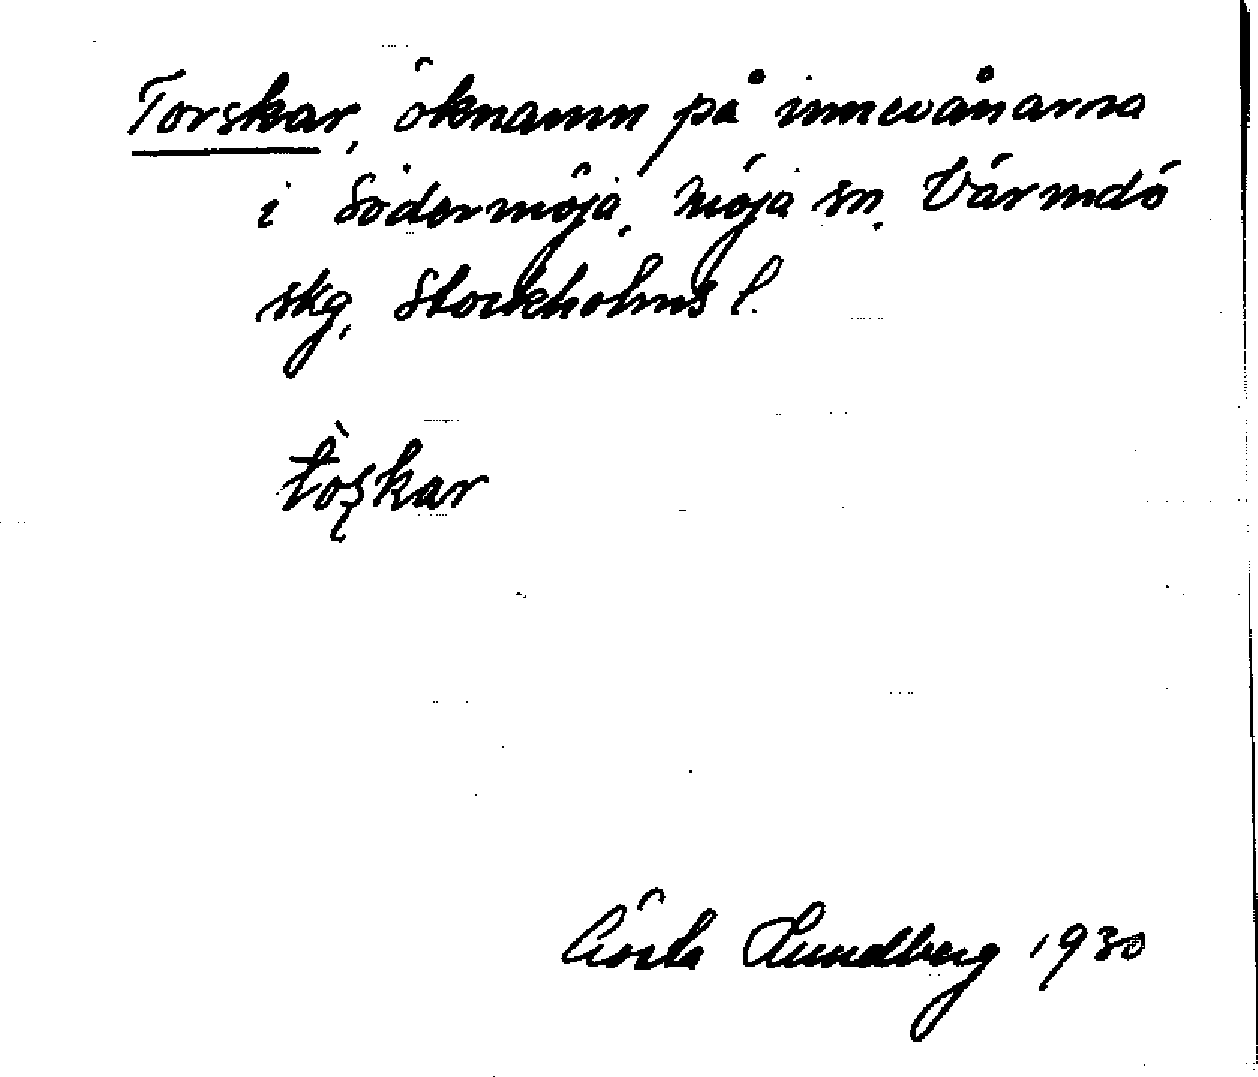 Torskar, öknamn på innevånarna
i Södermöja, Möja sn, Värmdö
skg, Stockholms l.
tòʂkar
Gösta Lundberg 1930